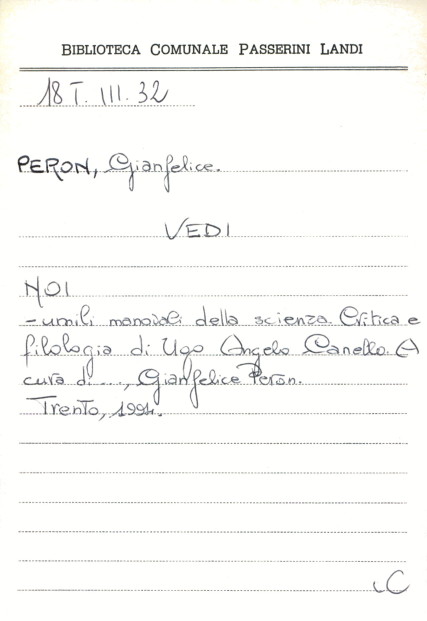 BIBLIOTECA COMUNALE PASSERINI LANDI
18 T. III. 32
PERON, Gianfelice.
VEDI
NOI
- umili manovali della scienza. Critica e
filologia di Ugo Angelo Canello. A
cura di ..., Gianfelice Peron.
Trento, 1994.